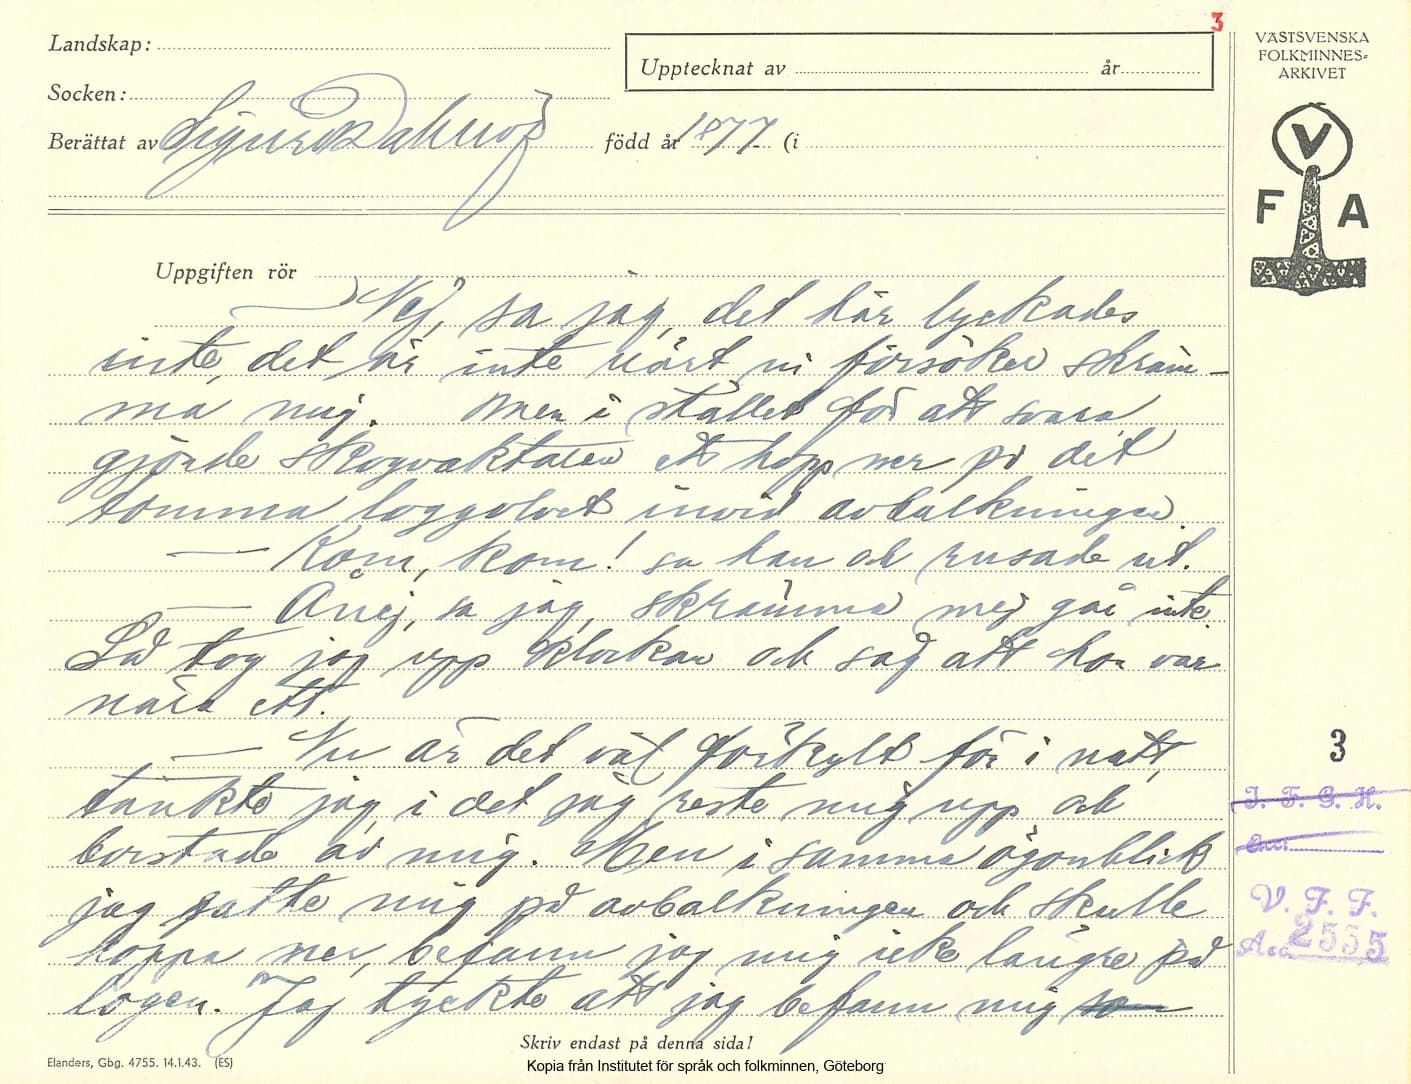 3
Landskap:
Socken:
Upptecknat av år
Berättat av född år 1877 (i
VÄSTSVENSKA
FOLKMINNES-
ARKIVET
V
F A
Uppgiften rör
— Nej, sa jag, det här lyckades
inte, det är inte värt ni försöker skräm-
ma mig. Men i stället för att svara
gjorde skogvaktaren ett hopp ner på det
tomma loggolvet invid avbalkningen.
— Kom, kom! sa han och rusade ut.
— Ånej, sa jag, skrämma mej går inte.
Så tog jag upp klockan och såg att hon var
nära ett.
— Nu är det väl förkylt för i natt,
tänkte jag i det jag reste mig upp och
borstade av mig. Men i samma ögonblick
jag satte mig på avbalkningen och skulle
hoppa ner, befann jag mig icke längre på
logen. Jag tyckte att jag befann mig so
3
I. F. G. H.
Acc.
V. F. F.
Acc. 2535
Skriv endast på denna sida!
Elanders, Gbg. 4755. 14.1.43. (ES)
Kopia från Institutet för språk och folkminnen, Göteborg